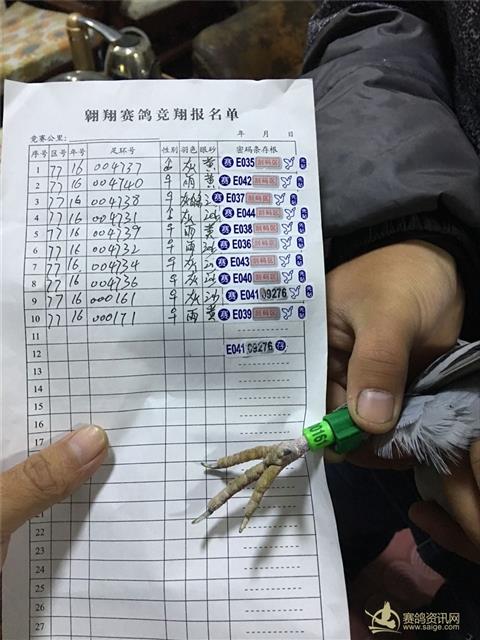 翱翔赛鸽竞翔报名单
竞赛公里: 年 月 日
序号 区号 年号 足环号 性别 羽色 眼砂 密码条存根
1 77 16 004737 灰 黄 赛 E035 刮码区
2 77 16 004740 雨 黄 赛 E042 刮码区
3 77 16 004738 赛 E037 刮码区
4 77 16 004731 灰 沙 赛 E044 刮码区
5 77 16 004739 雨 黄 赛 E038 刮码区
6 77 16 004732 雨 沙 赛 E036 刮码区
7 77 16 004734 灰 沙 赛 E043 刮码区
8 77 16 004736 灰 沙 赛 E040 刮码区
9 77 16 000161 灰 沙 赛 E041 09276
10 77 16 000171 雨 黄 赛 E039 刮码区
11
12 E041 09276
13
14
15
16
17
22
23
24
25
26
27
0016
赛鸽资讯网
www.saige.com